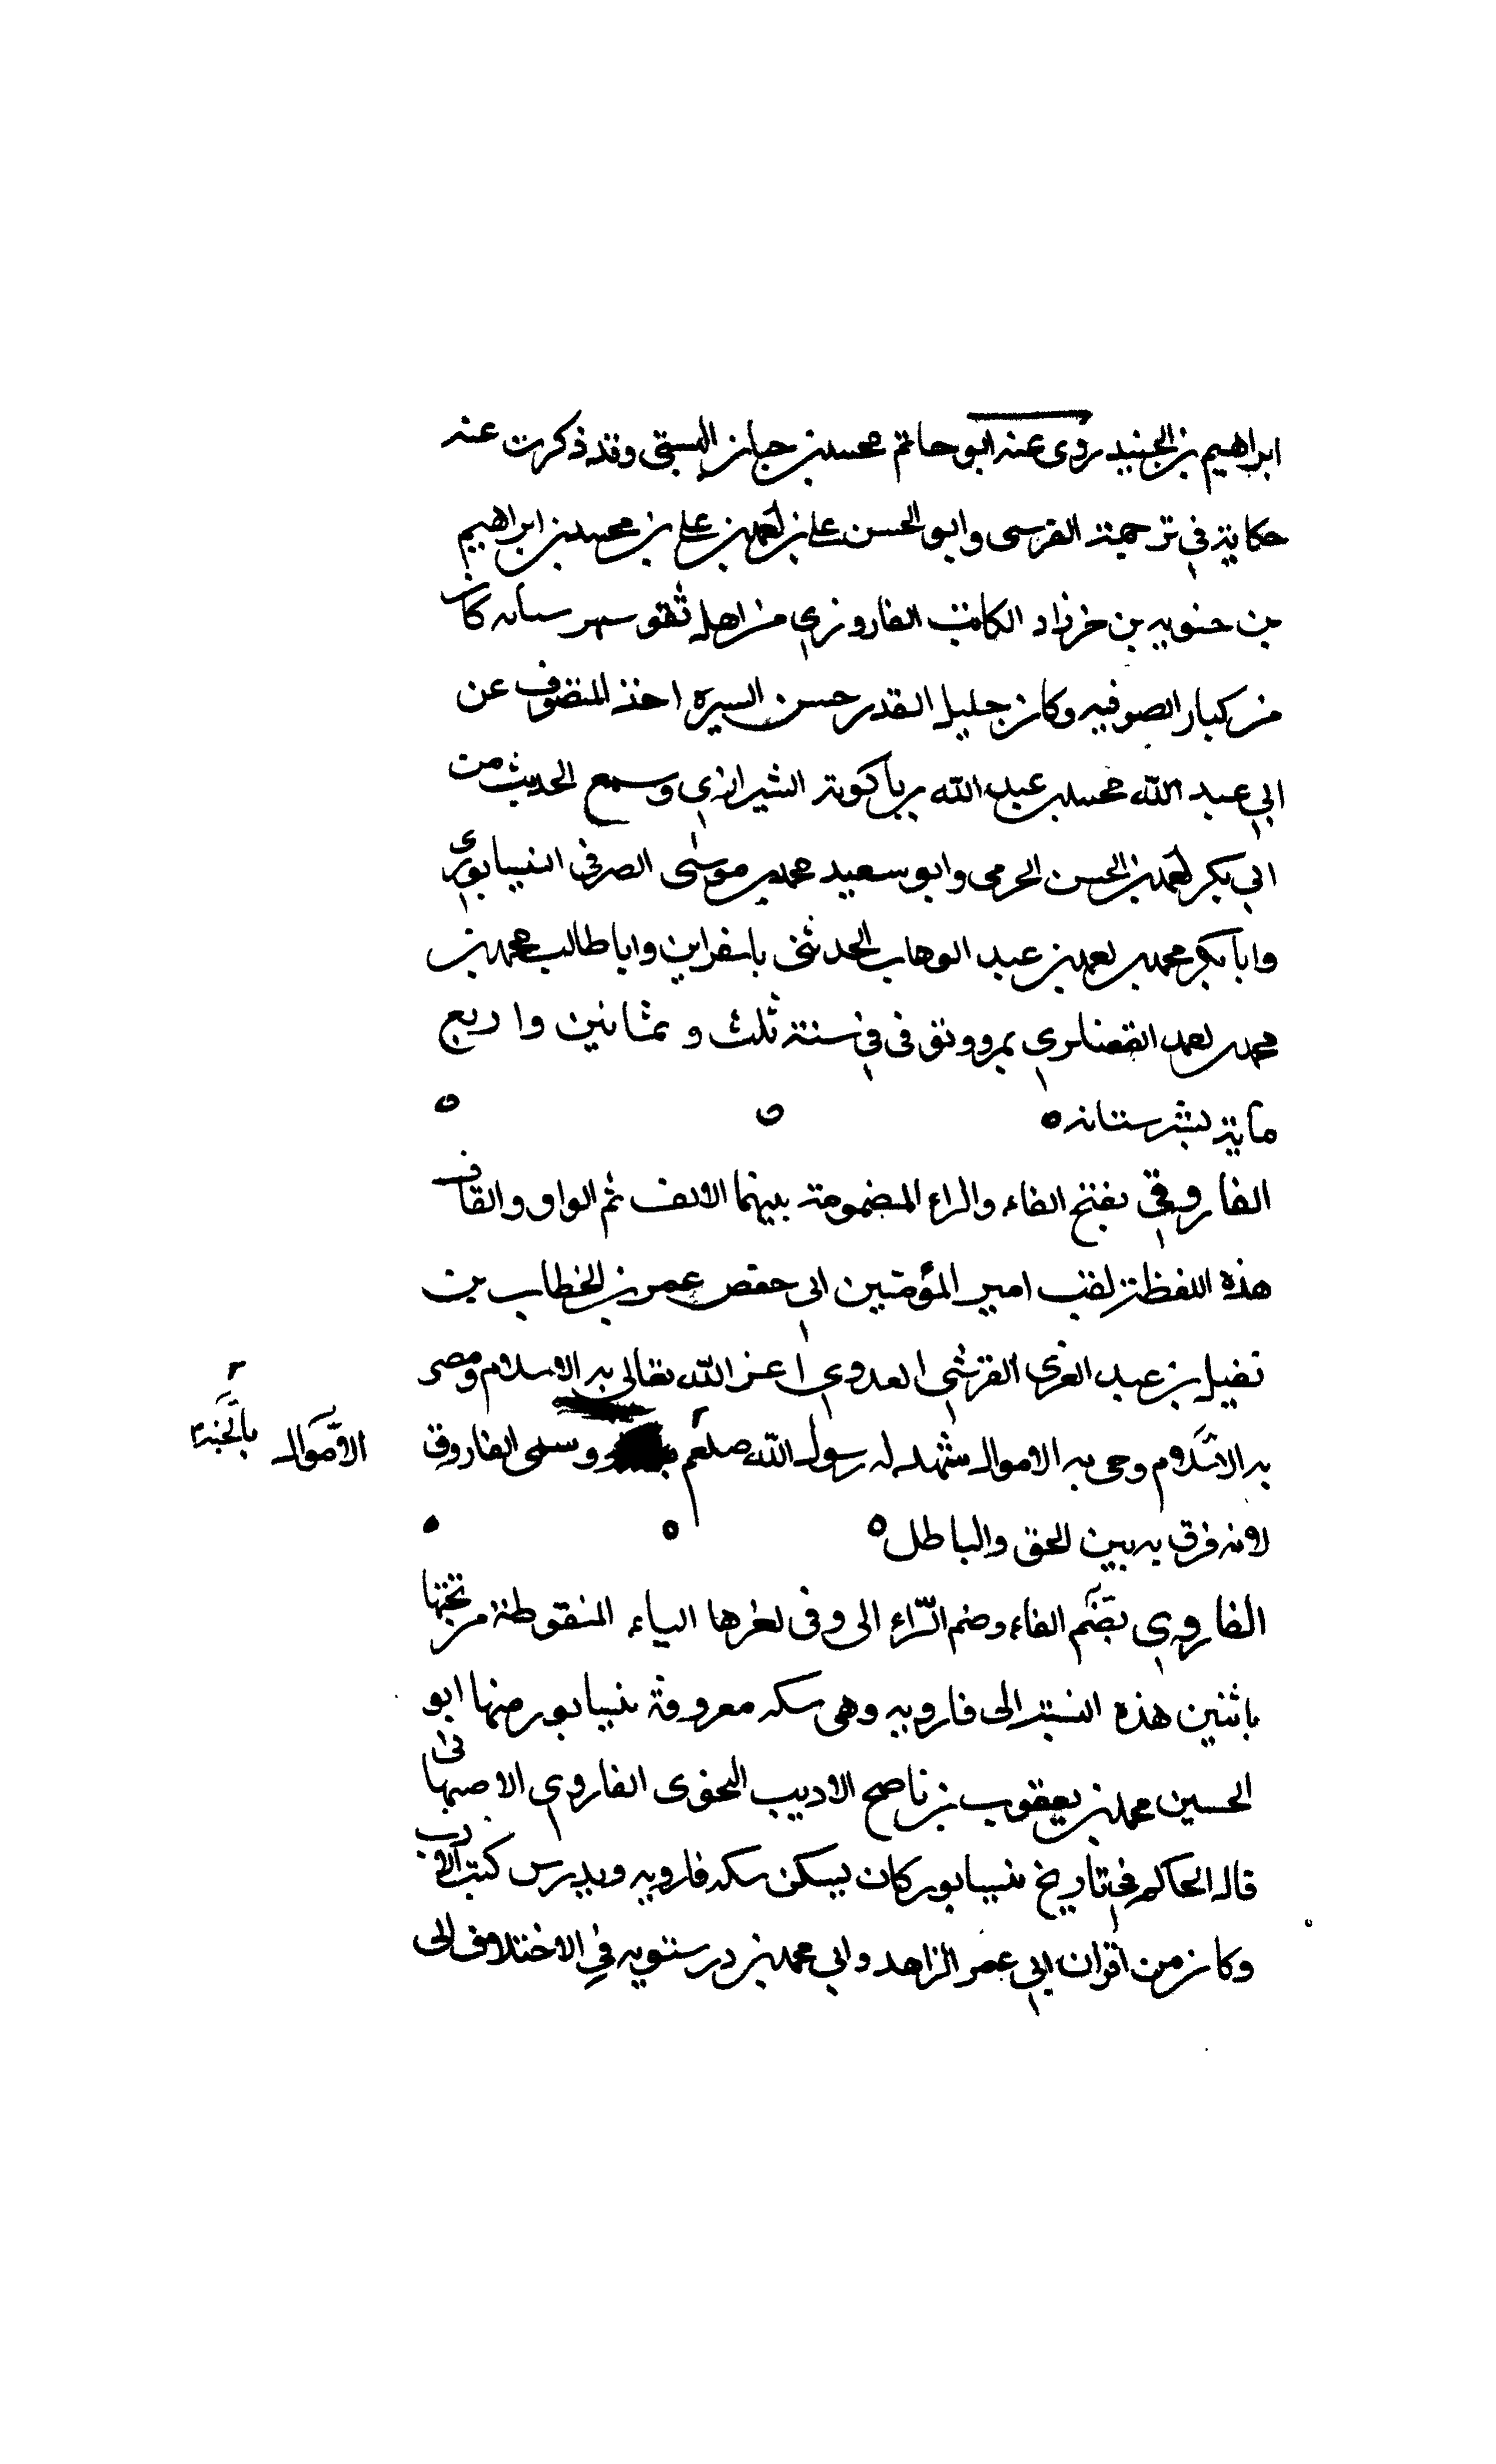 ابراهيم بن الجنيد روى عنه ابو حاتم محمد بن حبان البستي وقد ذكرت عنه
حكاية في ترجمة القرسى وابو الحسن علي بن احمد بن علي بن محمد بن ابراهيم
بن حنويه بن خرزاد الكاتب الفاروزي من اهل كان
من كبار الصوفيه وكان جليل القدر حسن السيرة اخذ التصوف عن
ابي عبد الله محمد بن عبد الله بن باكوية الشيرازي وسمع الحديث من
ابي بكر احمد بن الحسن الحرمى وابو سعيد محمد بن موسى الصرفى النيسابوري
وابا بكر محمد بن احمد بن عبد الوهاب الحدثنى باسفراين وابا طالب محمد بن
محمد بن احمد بمرو وتوفى في سنة ثلث وثمانين واربع
ماية بشرستانه
الفاروقي بفتح الفاء والراء المضمومة بينهما الالف ثم الواو والقاف
هذه اللفظة لقب امير المؤمنين ابى حفص عمر بن الخطاب بن
نفيل بن عبد العزى القرشي العدوي اعز الله تعالى به الاسلام ومصر
به الاسلام وحى به الاموال شهد له رسول الله صلعم وسمى الفاروق
الاموال بالجنة
لانه فرق به بين الحق والباطل
الفارويي بضم الفاء وضم الراء الى وفى اخرها الياء المنقوطة من تحتها
باثنين هذه النسبة الى فارويه وهى سكه معروفة بنيسابور منها ابو
الحسين محمد بن يعقوب بن ناصح الاديب النحوى الفارويى الاصبهانى
قال الحاكم في تاريخ نيسابور كان يسكن سكه فارويه ويدرس كتب الادب
وكان من اقران ابي عمر الزاهد وابي محمد بن درستويه في الاختلاف الى